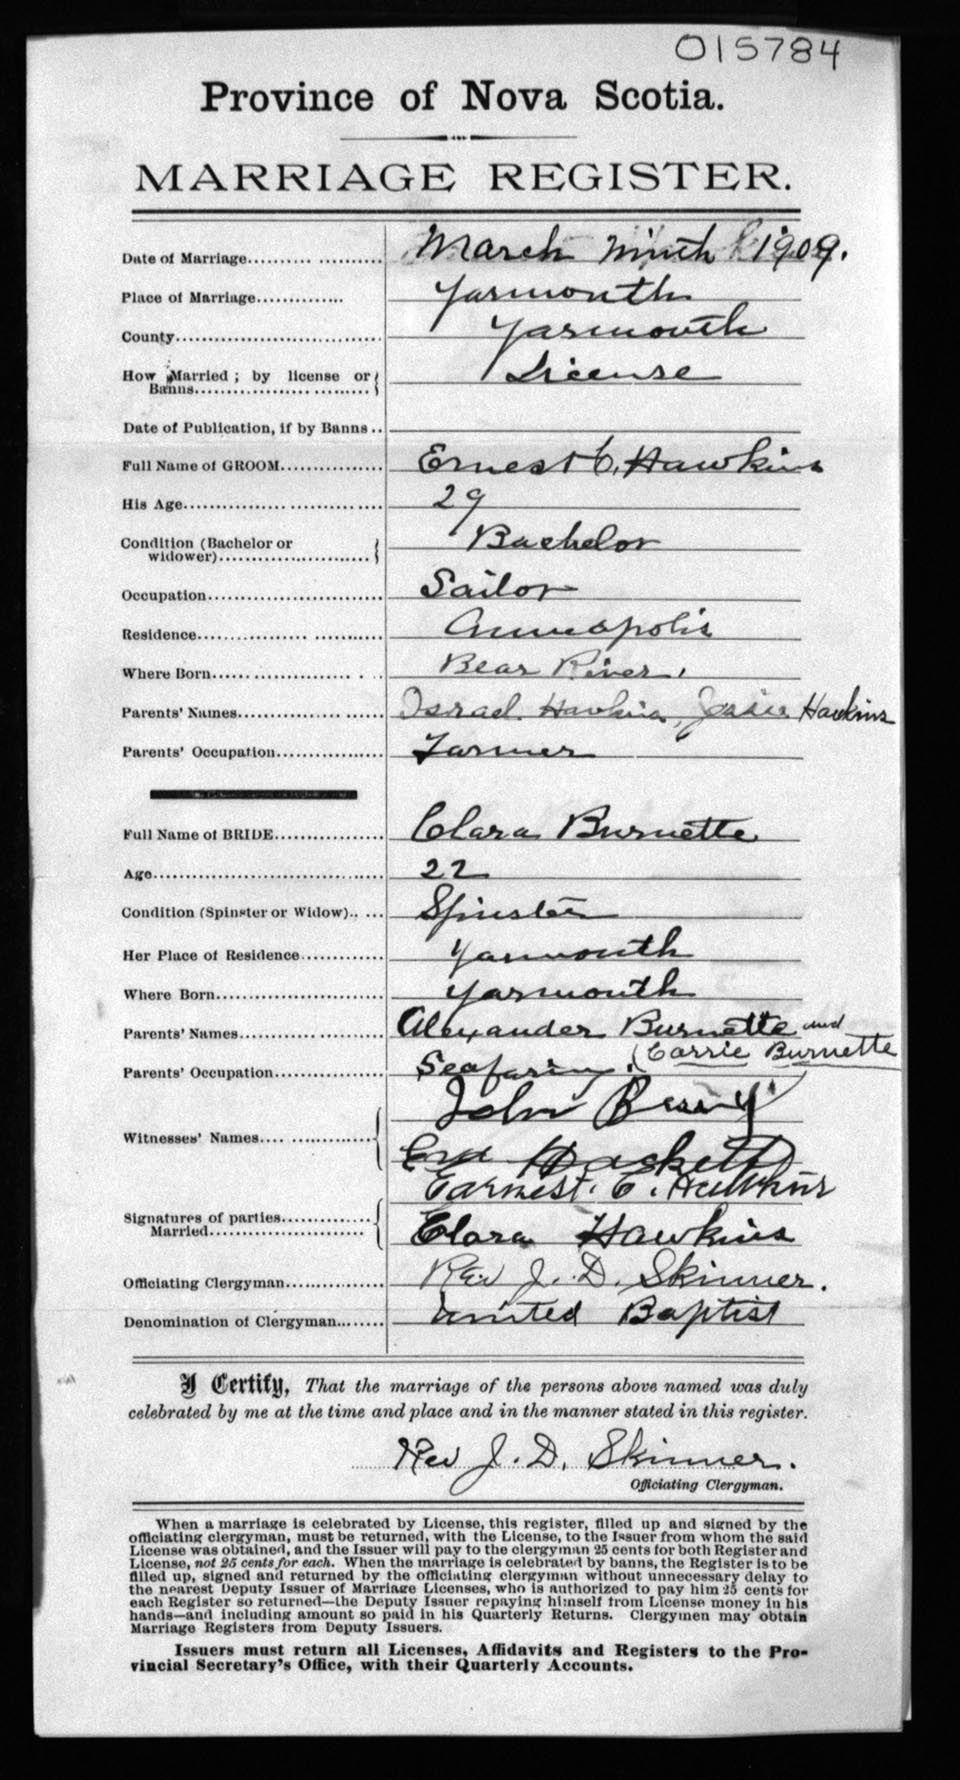 015784
Province of Nova Scotia.
MARRIAGE REGISTER.
Date of Marriage.......... ........... March Ninth 1909.
Place of Marriage.............. Yarmouth
County................................. Yarmouth
How Married ; by license or License
Banns................... .........
Date of Publication, if by Banns ..
Full Name of GROOM................ Ernest C. Hawkins
His Age................. ........... .... 29
Condition (Bachelor or Bachelor
widower).........................
Occupation............................ Sailor
Residence.................. ........... Annapolis
Where Born...... ............... . .. Bear River.
Parents' Names................. ...... Israel Hawkins, Jessie Hawkins
Parents' Occupation................. Farmer
Full Name of BRIDE................. Clara Burnette
Age..................................... 22
Condition (Spinster or Widow).. ... Spinster
Her Place of Residence............. Yarmouth
Where Born........................... Yarmouth
Parents' Names.............. ........ Alexander Burnette and
(Carrie Burnette
Parents' Occupation................. Seafaring.
John
Witnesses' Names.... ............... Haskett
Earnest. E. Hawkins
Signatures of parties..............
Married........................... Clara Hawkins
Officiating Clergyman............... Rev J. D. Skinner.
Denomination of Clergyman....... United Baptist
I Certify, That the marriage of the persons above named was duly
celebrated by me at the time and place and in the manner stated in this register.
Rev J. D. Skinner.
Officiating Clergyman.
When a marriage is celebrated by License, this register, filled up and signed by the
officiating clergyman, must be returned, with the License, to the Issuer from whom the said
License was obtained, and the Issuer will pay to the clergyman 25 cents for both Register and
License, not 25 cents for each. When the marriage is celebrated by banns, the Register is to be
filled up, signed and returned by the officiating clergyman without unnecessary delay to
the nearest Deputy Issuer of Marriage Licenses, who is authorized to pay him 25 cents for
each Register so returned—the Deputy Issuer repaying himself from License money in his
hands—and including amount so paid in his Quarterly Returns. Clergymen may obtain
Marriage Registers from Deputy Issuers.
Issuers must return all Licenses, Affidavits and Registers to the Pro-
vincial Secretary's Office, with their Quarterly Accounts.